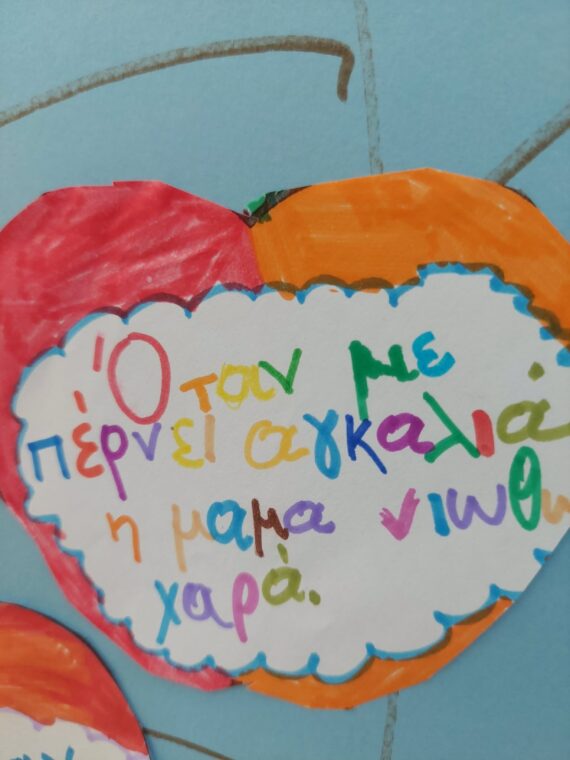 Όταν με
πέρνει αγκαλιά
η μαμα νιωθω
χαρά.